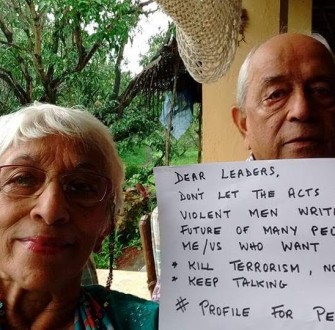 DEAR LEADERS,
DON'T LET THE ACTS
VIOLENT MEN
FUTURE OF MANY
ME/US WHO WANT
* KILL TERRORISM,
* KEEP TALKING
# PROFILE FOR